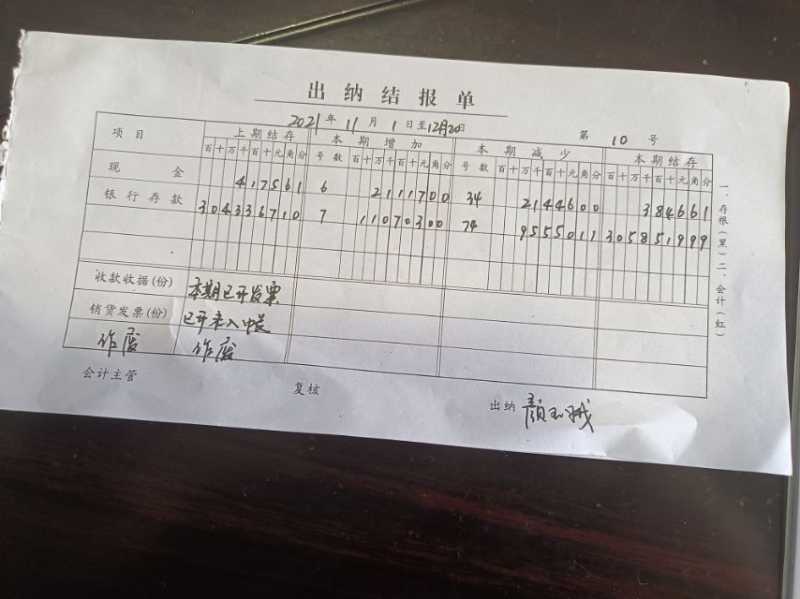 出纳结报单
2021年11月1日至12月20日 第10号
项目 上期结存 本期增加 本期减少 本期结存
百十万千百十元角分 号数 百十万千百十元角分 号数 百十万千百十元角分 百十万千百十元角分
现金 417561 6 2111700 34 2144600 384661
银行存款 304336710 7 11070300 74 9555011 305851999
收款收据(份) 本期已开发票
销货发票(份) 已开未入
作废 作废
会计主管 复核 出纳 颜
一、存根(黑)二、会计(红)